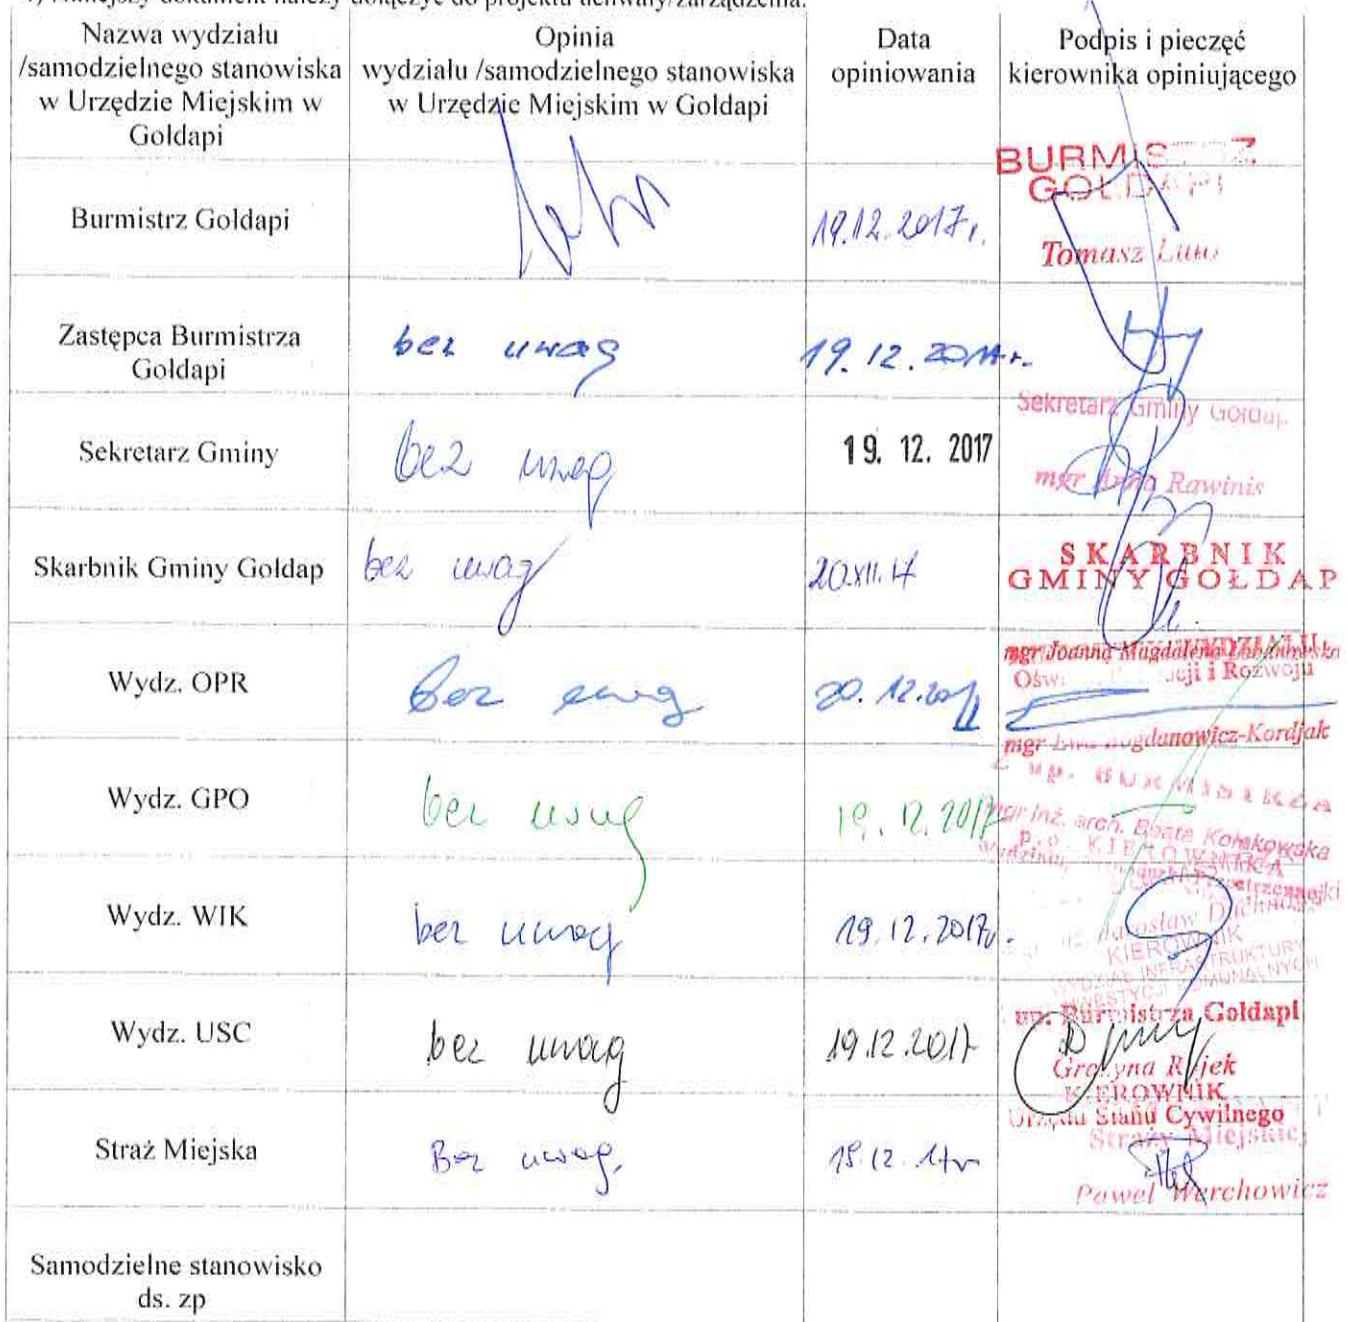 Niniejszy dokument należy dołączyć do projektu uchwały/zarządzenia.
Nazwa wydziału
/samodzielnego stanowiska
w Urzędzie Miejskim w
Gołdapi
Opinia
wydziału /samodzielnego stanowiska
w Urzędzie Miejskim w Gołdapi
Data
opiniowania
Podpis i pieczęć
kierownika opiniującego
Burmistrz Gołdapi
19.12.2017r.
BURMISTRZ
GOŁDAPI
Tomasz
Zastępca Burmistrza
Gołdapi
bez uwag
19.12.2017r.
Sekretarz Gminy
bez uwag
19. 12. 2017
Sekretarz Gminy Gołdap
mgr Anna Rawinis
Skarbnik Gminy Gołdap
bez uwag
20.XII.17
SKARBNIK
GMINY GOŁDAP
mgr Joanna Magdalena
Wydz. OPR
bez uwag
20.12.2017
WYDZIAŁU
i Rozwoju
mgr Ewa Bogdanowicz-Kordjak
Wydz. GPO
bez uwag
19.12.2017
up. BURMISTRZA
mgr inż. arch. Beata Kołakowska
p.o. KIEROWNIKA
Wydz. WIK
bez uwag
19.12.2017r.
Jarosław
KIEROWNIK
WYDZIAŁ INFRASTRUKTURY
INWESTYCJI KOMUNALNYCH
Wydz. USC
bez uwag
19.12.2017
up. Burmistrza Gołdapi
Grażyna Rojek
KIEROWNIK
Urzędu Stanu Cywilnego
Straż Miejska
Bez uwag.
19.12.17r
Straży Miejskiej
Paweł Werchowicz
Samodzielne stanowisko
ds. zp